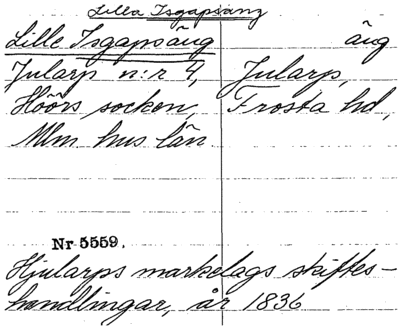 Lilla Isgapsäng
Lille Isgapsäng äng
Jularp n:r 4, Jularp,
Höörs socken, Frosta hd,
Mlm hus län
Nr 5559.
Hjularps markelags skiftes-
handlingar, år 1836